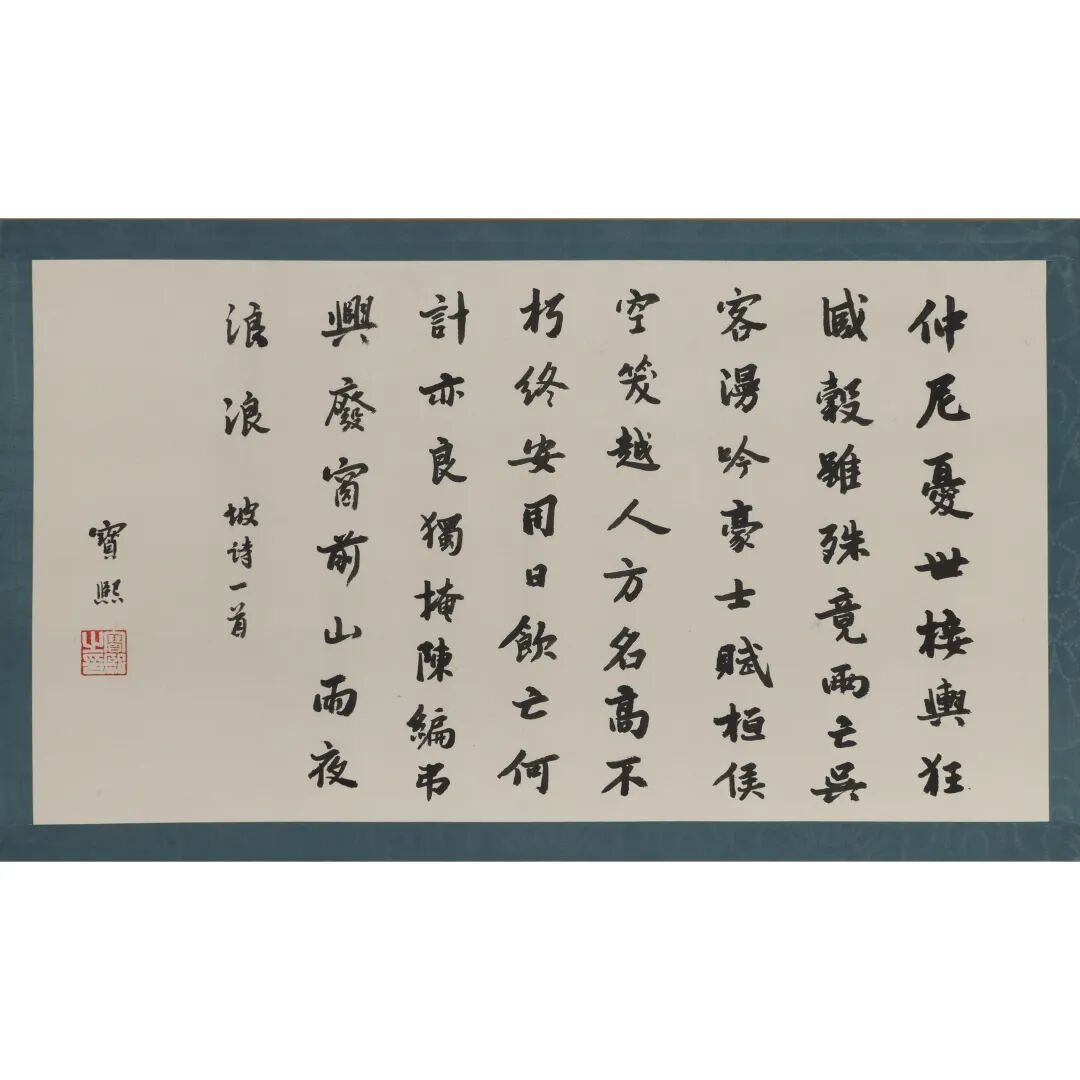 仲尼憂世接輿狂
臧穀雖殊竟兩亡吳
客漫吟豪士賦桓侯
空笑越人方名高不
朽終安用日飲亡何
計亦良獨掩陳編弔
興廢窗前山雨夜
浪浪 坡詩一首
寶熙
寶熙之印